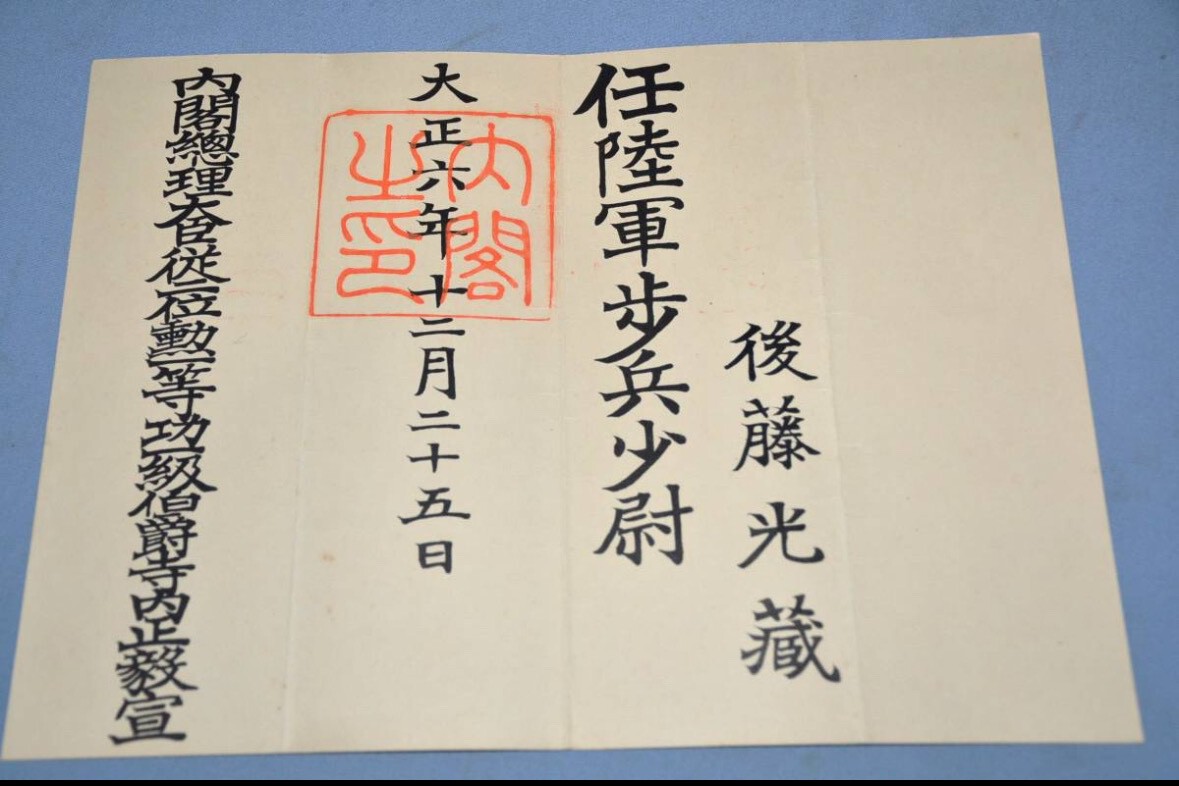 後藤光藏
任陸軍步兵少尉
大正六年十二月二十五日
内閣之印
内閣總理大臣從二位勳一等功一級伯爵寺内正毅宣